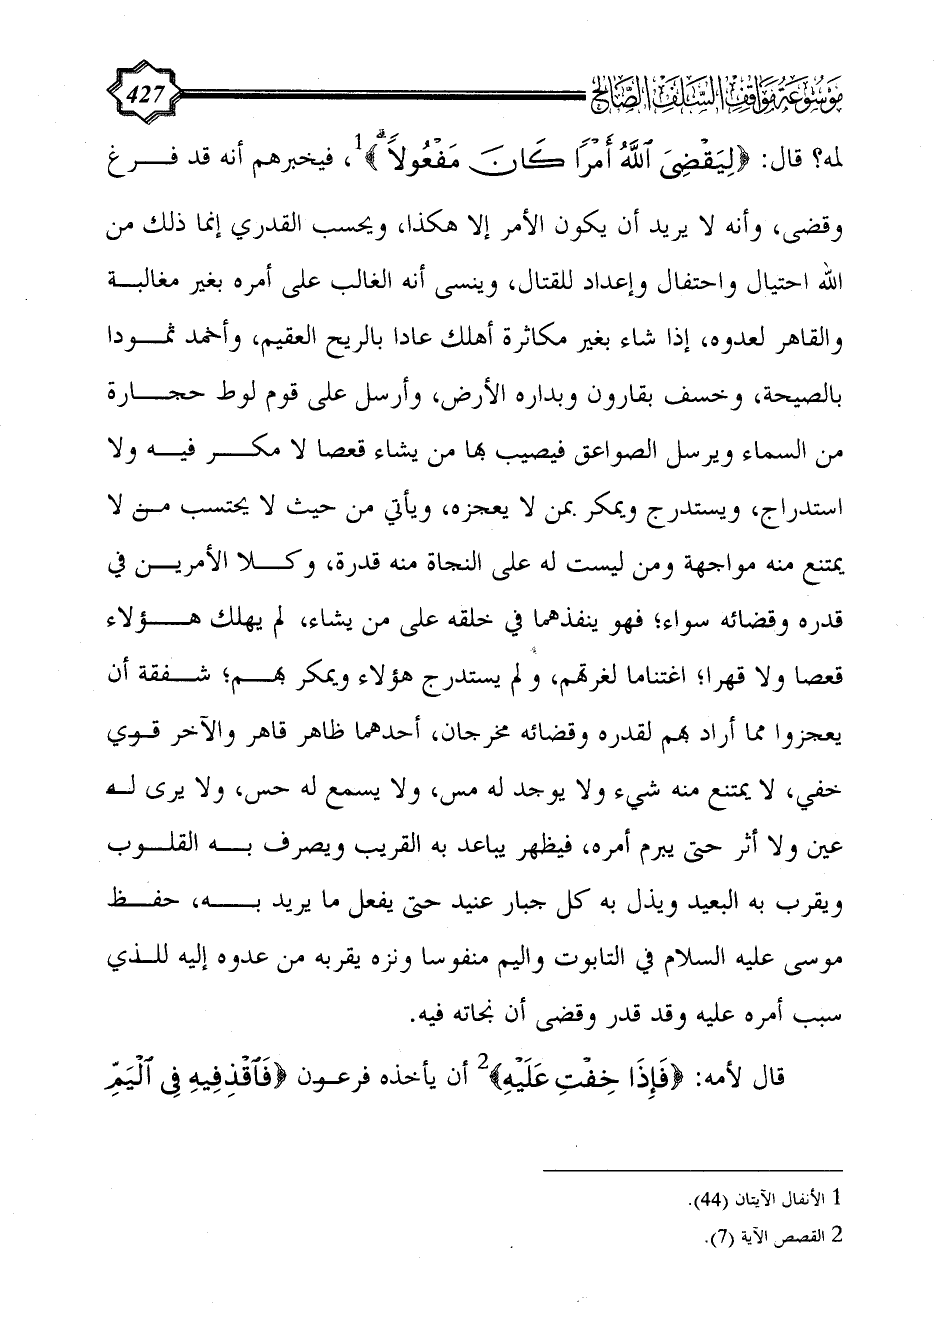 موسوعة مواقف السلف الصالح
427
لمه؟ قال: ﴿لِيَقْضِيَ ٱللَّهُ أَمْرًا كَانَ مَفْعُولًاۗ﴾1، فيخبرهم أنه قد فرغ
وقضى، وأنه لا يريد أن يكون الأمر إلا هكذا، ويحسب القدري إنما ذلك من
الله احتيال واحتفال وإعداد للقتال، وينسى أنه الغالب على أمره بغير مغالبة
والقاهر لعدوه، إذا شاء بغير مكاثرة أهلك عادا بالريح العقيم، وأخمد ثمودا
بالصيحة، وخسف بقارون وبداره الأرض، وأرسل على قوم لوط حجارة
من السماء ويرسل الصواعق فيصيب بها من يشاء قعصا لا مكر فيه ولا
استدراج، ويستدرج ويمكر بمن لا يعجزه، ويأتي من حيث لا يحتسب من لا
يمتنع منه مواجهة ومن ليست له على النجاة منه قدرة، وكلا الأمرين في
قدره وقضائه سواء؛ فهو ينفذهما في خلقه على من يشاء، لم يهلك هؤلاء
قعصا ولا قهرا؛ اغتناما لغرتهم، ولم يستدرج هؤلاء ويمكر بهم؛ شفقة أن
يعجزوا مما أراد بهم لقدره وقضائه مخرجان، أحدهما ظاهر قاهر والآخر قوي
خفي، لا يمتنع منه شيء ولا يوجد له مس، ولا يسمع له حس، ولا يرى له
عين ولا أثر حتى يبرم أمره، فيظهر يباعد به القريب ويصرف به القلوب
ويقرب به البعيد ويذل به كل جبار عنيد حتى يفعل ما يريد به، حفظ
موسى عليه السلام في التابوت واليم منفوسا ونزه يقربه من عدوه إليه للذي
سبب أمره عليه وقد قدر وقضى أن نجاته فيه.
قال لأمه: ﴿فَإِذَا خِفْتِ عَلَيْهِ﴾2 أن يأخذه فرعون ﴿فَٱقْذِفِيهِ فِي ٱلْيَمِّ
1 الأنفال الآيتان (44).
2 القصص الآية (7).